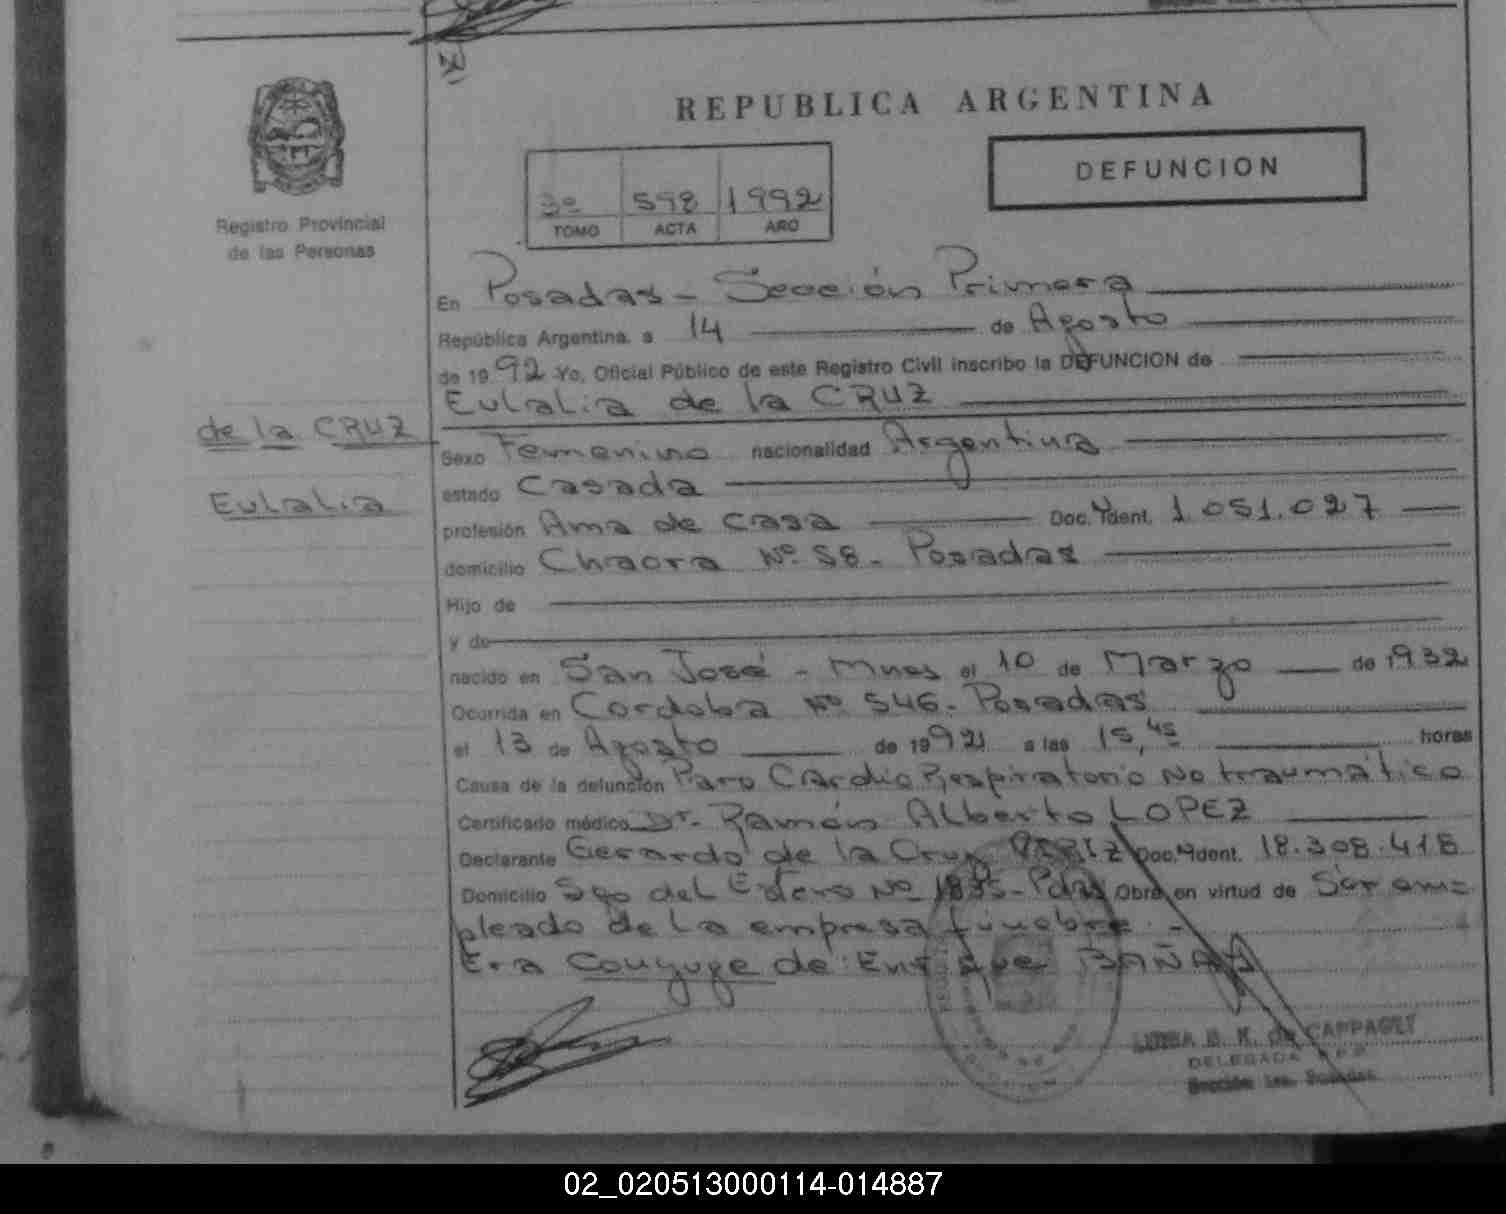 REPUBLICA ARGENTINA
DEFUNCION
3º 598 1992
TOMO ACTA AÑO
Registro Provincial
de las Personas
En Posadas - Sección Primera
República Argentina, a 14 de Agosto
de 1992 Yo, Oficial Público de este Registro Civil inscribo la DEFUNCION de
Eulalia de la CRUZ
de la CRUZ
Eulalia
Sexo Femenino nacionalidad Argentina
estado Casada
profesión Ama de casa Doc. Ydent. 1.051.027
domicilio Chacra Nº 58 - Posadas
Hijo de
y de
nacido en San José - Mnes el 10 de Marzo de 1932
Ocurrida en Cordoba Nº 546 - Posadas
el 13 de Agosto de 1992 a las 15,45 horas
Causa de la defunción Paro Cardio Respiratorio No traumático
Certificado médico Dr. Ramón Alberto LOPEZ
Declarante Gerardo de la Cruz Doc. Ydent. 18.308.418
Domicilio Sgo del Estero Nº 1835 - Pdas Obra en virtud de Ser em=
pleado de la empresa funebre. -
Era Conyuge de: Enrique
DELEGADA R.P.P.
Sección 1ra. Posadas
02_020513000114-014887